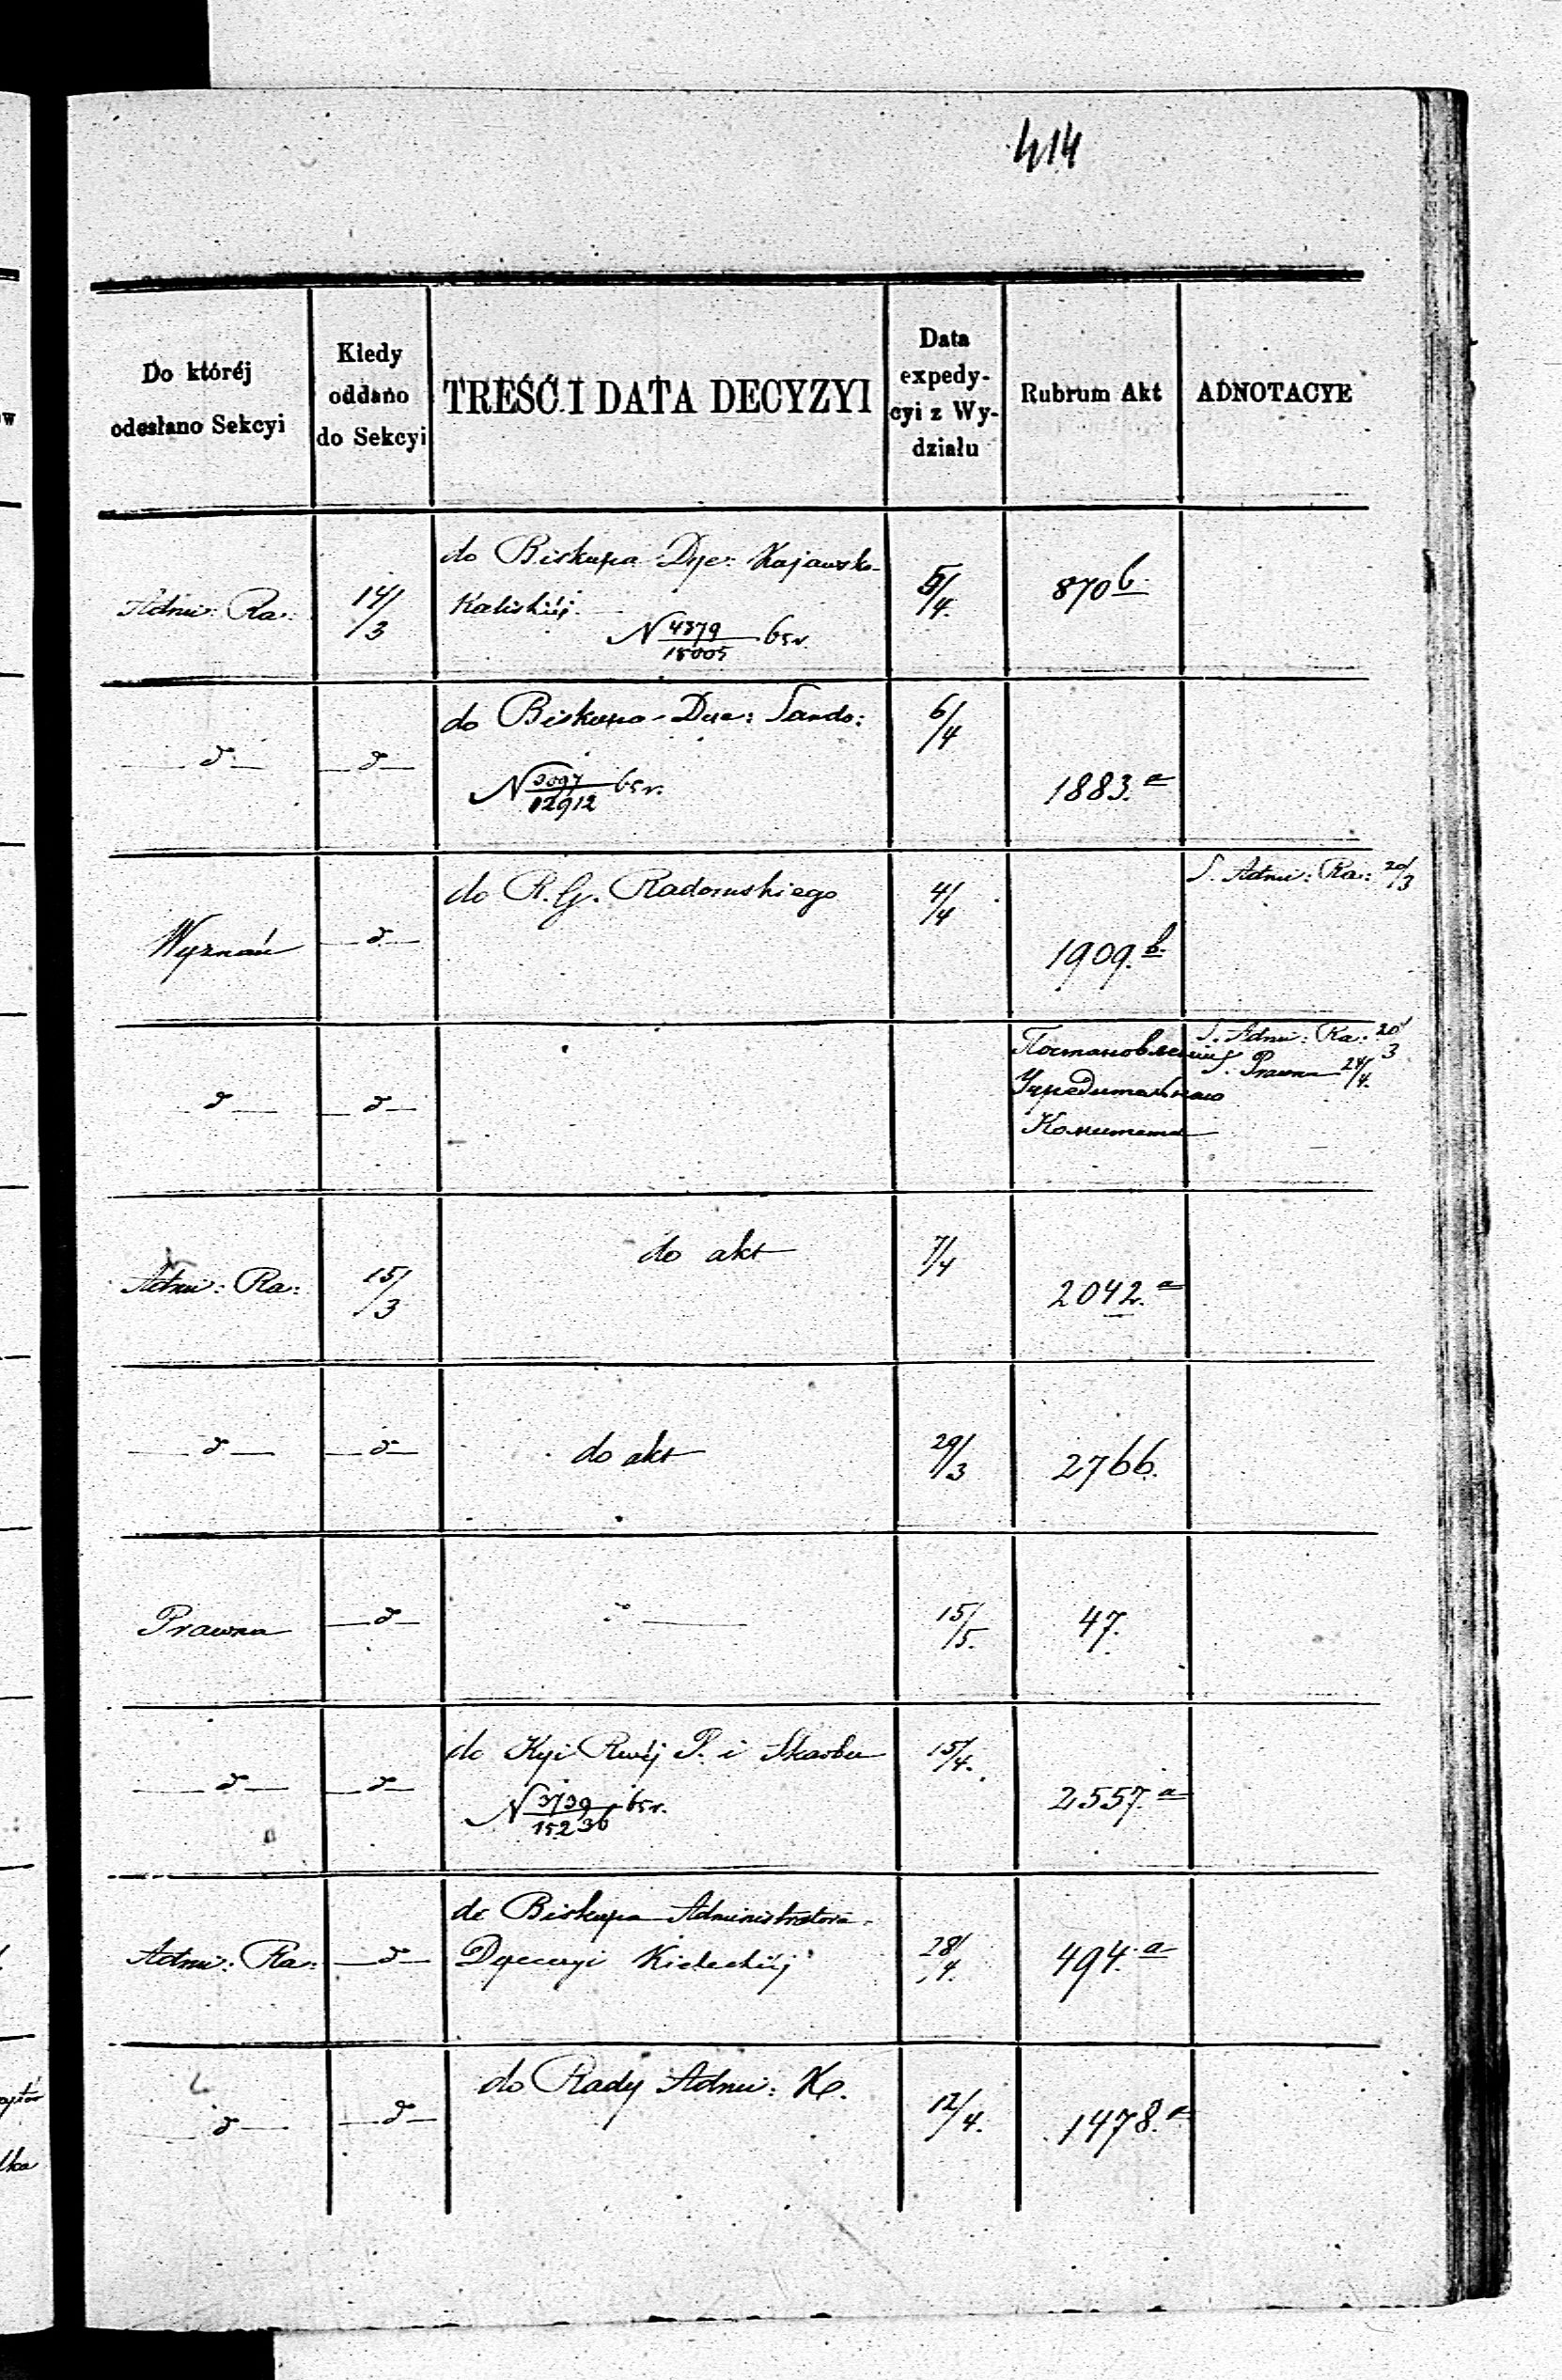 414
Do któréj
odesłano Sekcyi
Kiedy
oddano
do Sekcyi
TREŚĆ I DATA DECYZYI
Data
expedy-
cyi z Wy-
działu
Rubrum Akt
ADNOTACYE
Adm: Ra:
14/3
do Biskupa Dye: Kujawsko-
Kaliskiéj
N 4379/15005 65 r.
5/4.
870 b.
d
d
do Biskupa Dye: Sando:
N 3097/12912 65 r.
6/4
1883. a
Wyznań
d
do R. G. Radomskiego
4/4
1909. b.
S. Adm: Ra: 20/3
d
d
Постановленiй
Учредительнаго
Комитета
S. Adm: Ra: 20/3
S. Prawna 24/4.
Adm: Ra:
15/3
do akt
7/4
2042. a
d
d
do akt
29/3
2766.
Prawna
d
15/5.
47.
d
d
do Kyi Rwéj P. i Skarbu
N 3739/15236 65 r.
15/4.
2557. a
Adm: Ra:
d
do Biskupa Administratora
Dyecezyi Kieleckiéj
28/4.
494. a
d
d
do Rady Adm: K.
12/4.
1478. a